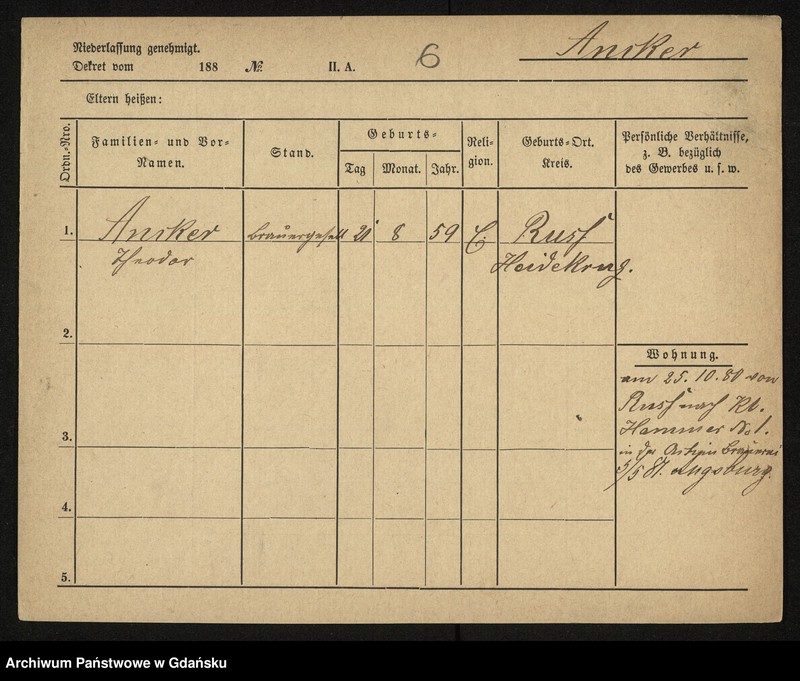 Niederlassung genehmigt.
Dekret vom 188 No. II. A. 6 Ansker
Eltern heißen:
Ordn.-Nro. Familien- und Vor-Namen. Stand. Geburts- Tag Monat. Jahr. Religion. Geburts-Ort. Kreis. Persönliche Verhältnisse, z. B. bezüglich des Gewerbes u. s. w.
1. Ansker Brauergesell 21 8 59 E. Russ
Theodor Heidekrug.
2.
Wohnung.
am 25. 10. 80 von
Russ nach Kl.
Hammer No 1.
3.
in der Actien Brauerei
3/5 81. Augsburg.
4.
5.
Archiwum Państwowe w Gdańsku